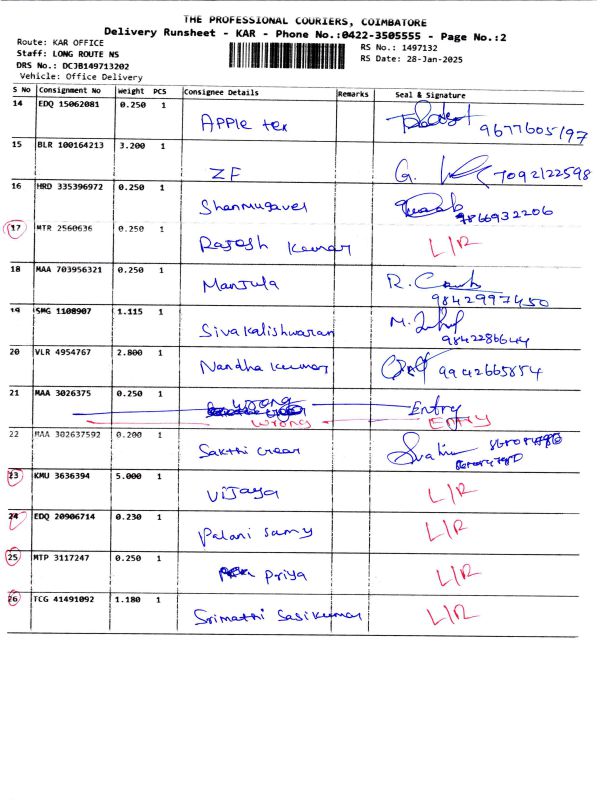 THE PROFESSIONAL COURIERS, COIMBATORE
Delivery Runsheet - KAR - Phone No.:0422-3505555 - Page No.:2
Route: KAR OFFICE
RS No.: 1497132
Staff: LONG ROUTE NS
RS Date: 28-Jan-2025
DRS No.: DCJB149713202
Vehicle: Office Delivery
S No Consignment No Weight PCS Consignee Details Remarks Seal & Signature
14 EDQ 15062081 0.250 1
APPle tex 9677605197
15 BLR 100164213 3.200 1
ZF G. 7092122598
16 HRD 335396972 0.250 1
Shanmugavel 9866932206
17 MTR 2560636 0.250 1
Rajesh Kumar L/R
18 MAA 703956321 0.250 1
Manjula R.
9842997450
19 SMG 1108907 1.115 1
Sivakalishwaran M.
9842286644
20 VLR 4954767 2.800 1
Nandha kumar 9942665854
21 MAA 3026375 0.250 1
wrong Entry
wrong ENTRY
22 MAA 302637592 0.200 1
Sakthi Gear
23 KMU 3636394 5.000 1
Vijaya L/R
24 EDQ 20906714 0.230 1
Palani Samy L/R
25 MTP 3117247 0.250 1
Priya L/R
26 TCG 41491092 1.180 1
Srimathi Sasikumar L/R